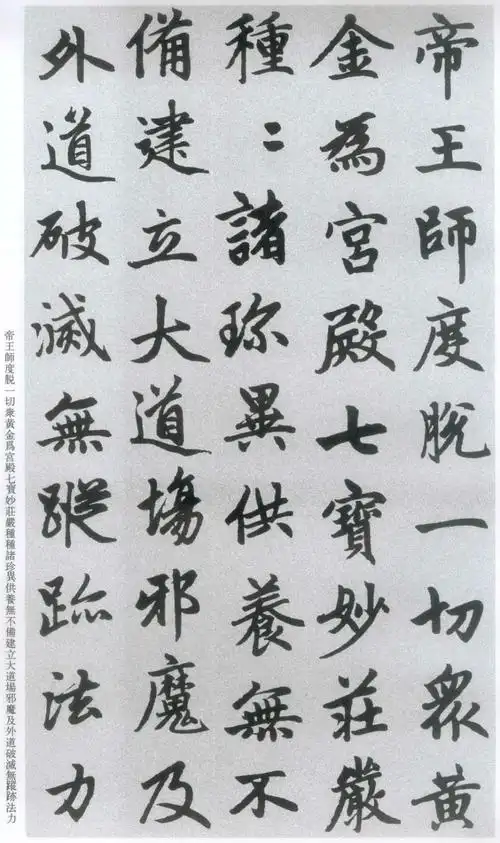 帝王師度脫一切衆黃
金為宮殿七寶妙莊嚴
種〻諸珎異供養無不
備建立大道場邪魔及
外道破滅無蹤跡法力
帝王師度脫一切衆黃金爲宮殿七寶妙莊嚴種種諸珍異供養無不備建立大道場邪魔及外道破滅無蹤跡法力